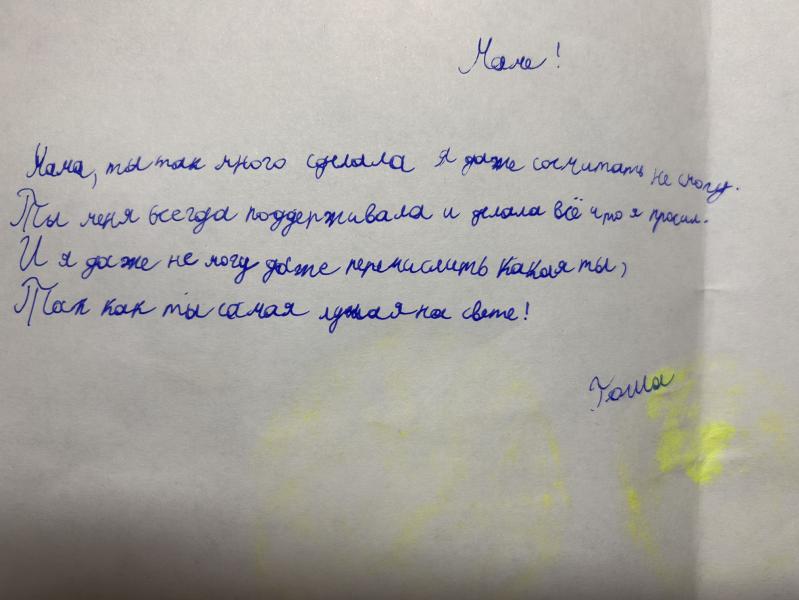 Маме!
Мама, ты так много сделала я даже сосчитать не смогу.
Ты меня всегда поддерживала и делала всё что я просил.
И я даже не могу даже перечислить какая ты,
Так как ты самая лучшая на свете!
Гоша